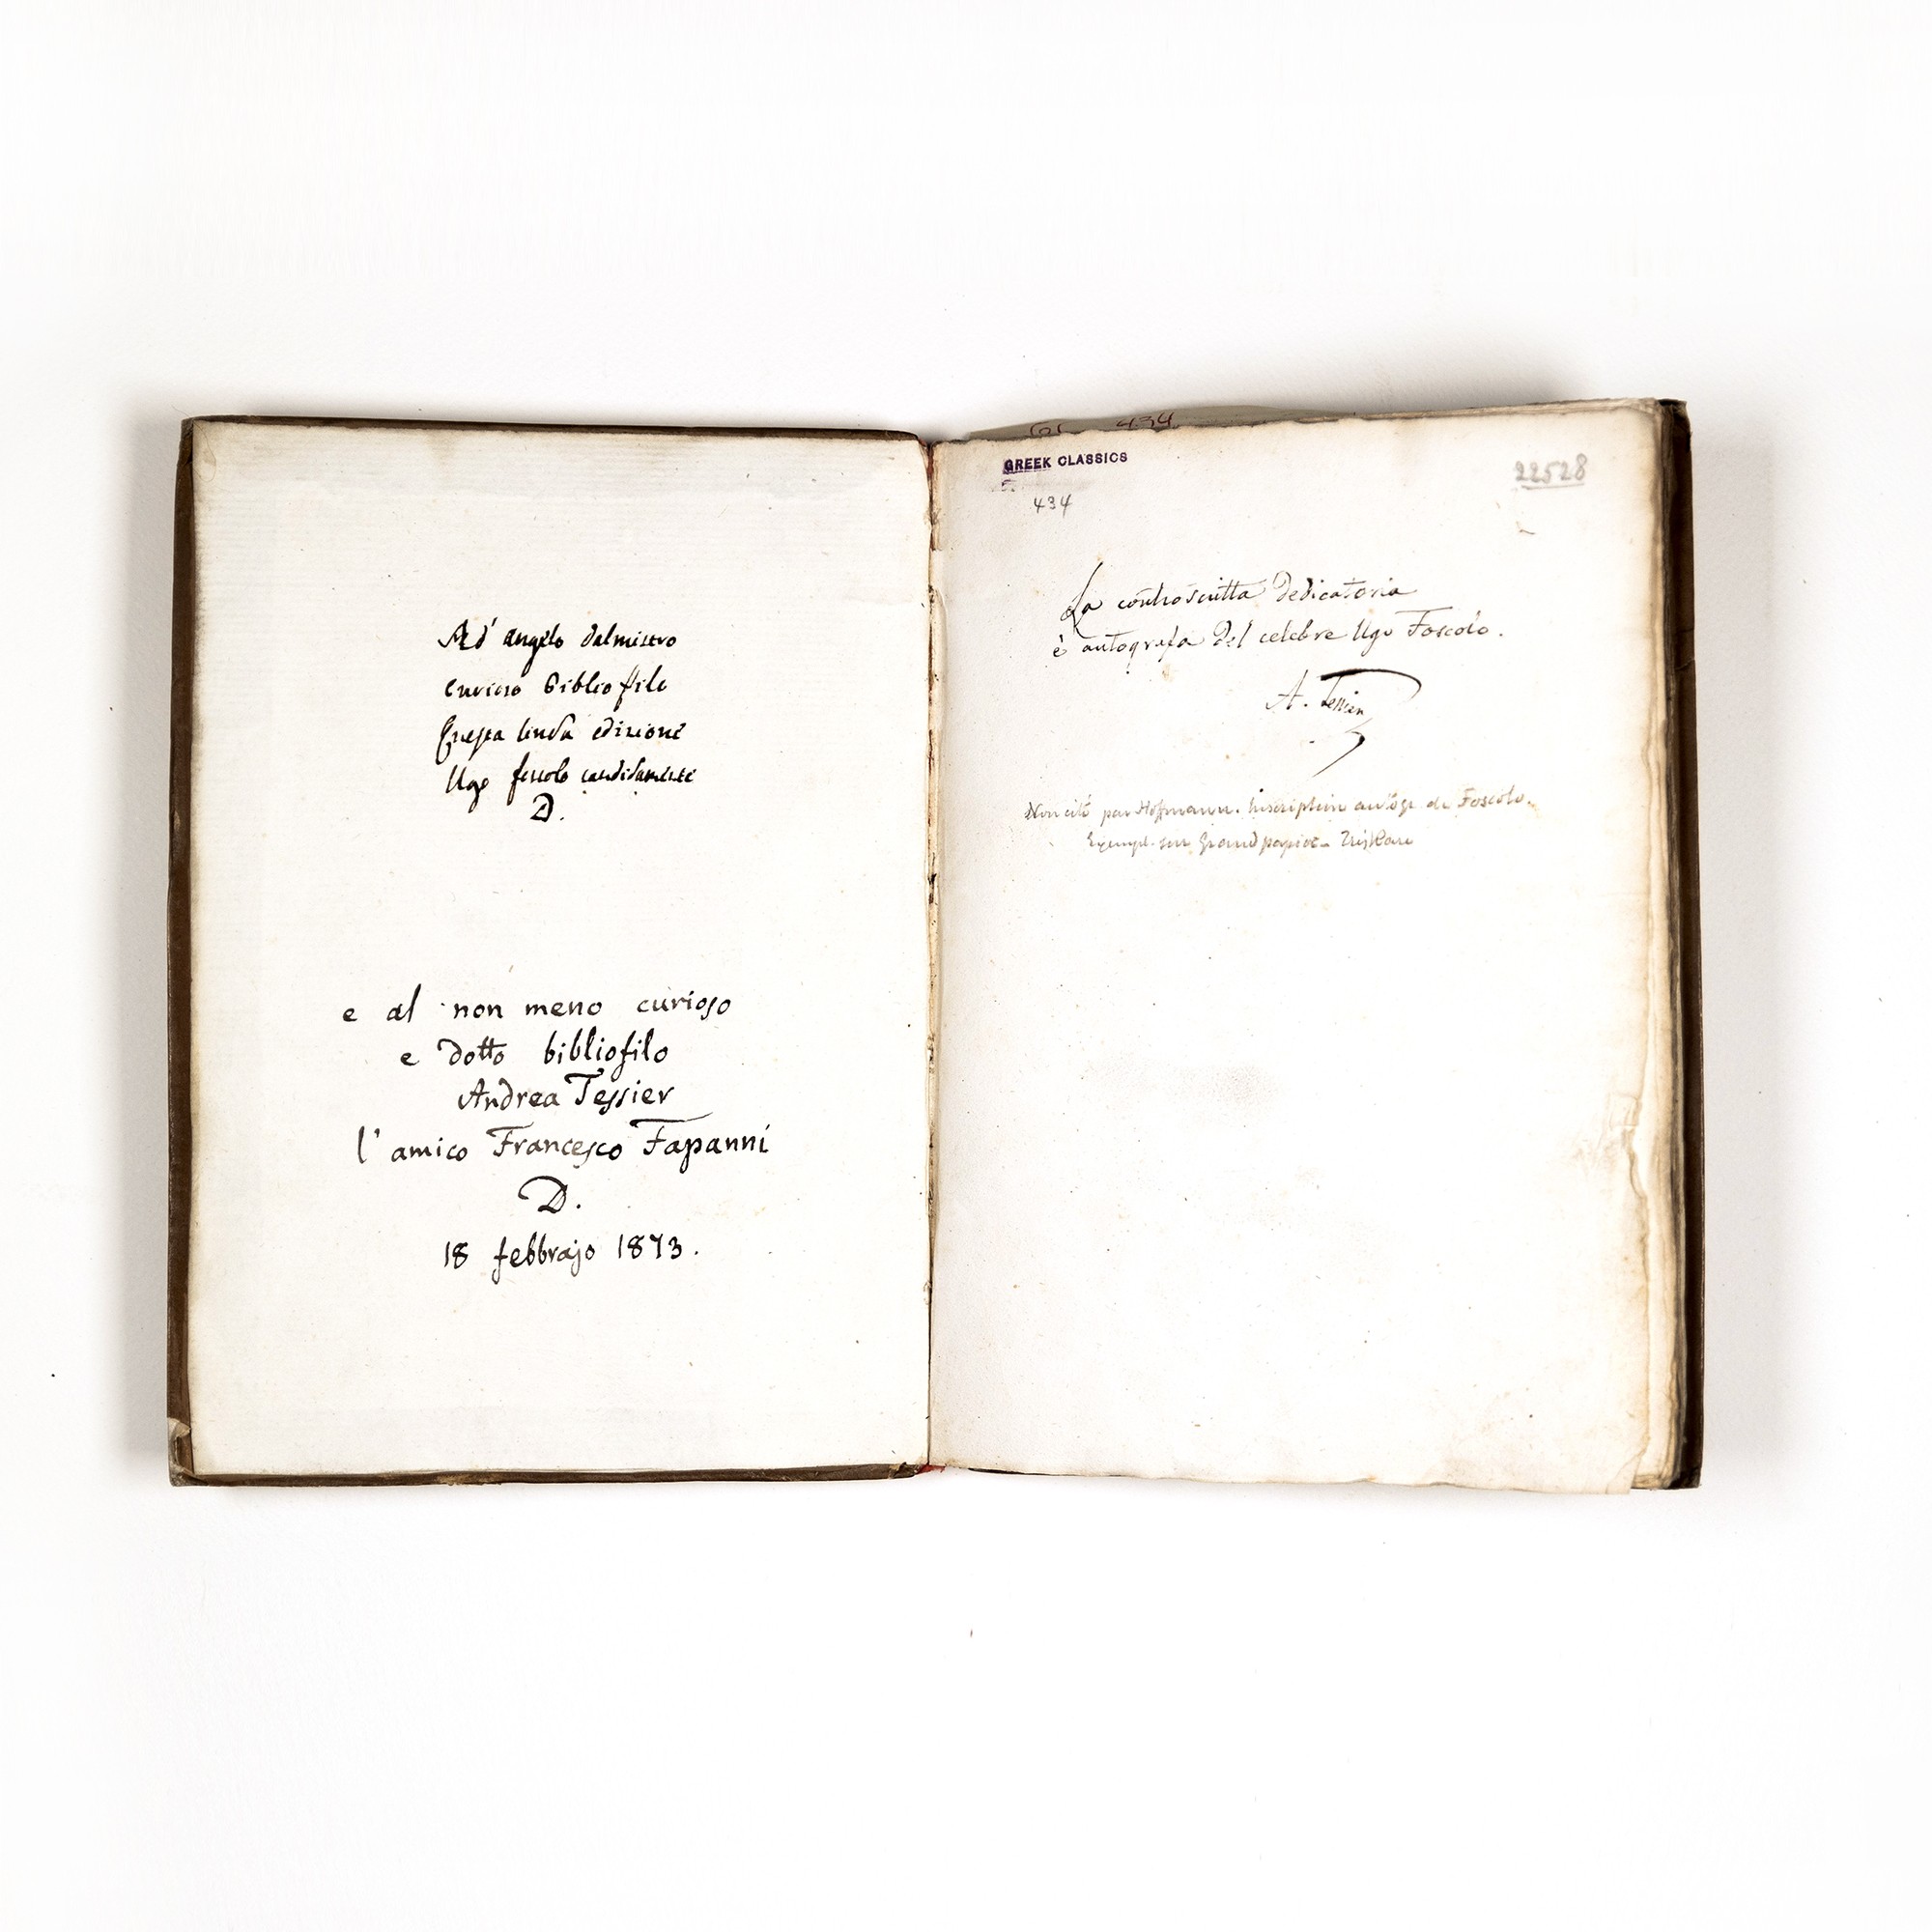 Ad angelo dalmistro
curioso bibliofilo
Questa linda edizione
Ugo foscolo candidamente
D.
e al non meno curioso
e dotto bibliofilo
Andrea Tessier
l'amico Francesco Fapanni
D.
18 febbrajo 1873.
GL 434
GREEK CLASSICS
434
22528
La controscritta dedicatoria
è autografa del celebre Ugo Foscolo.
A. Tessier
Non cité par Hoffmann. Inscription autogr de Foscolo.
Exempl. sur Grand papier. Très Rare